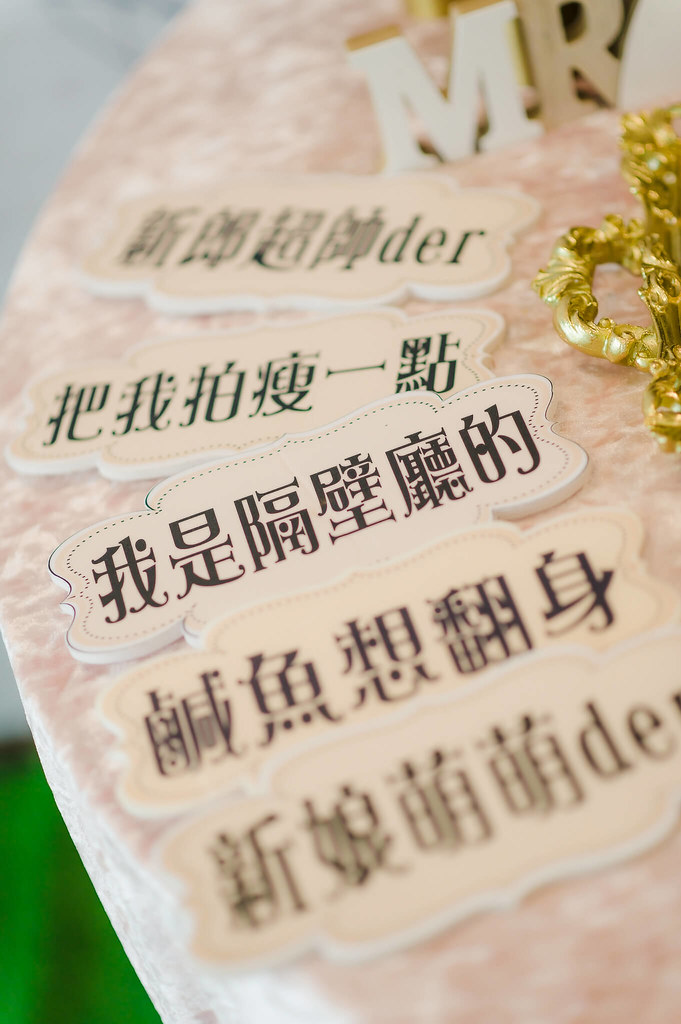 MR
新郎超帥der
把我拍瘦一點
我是隔壁廳的
鹹魚想翻身
新娘萌萌der